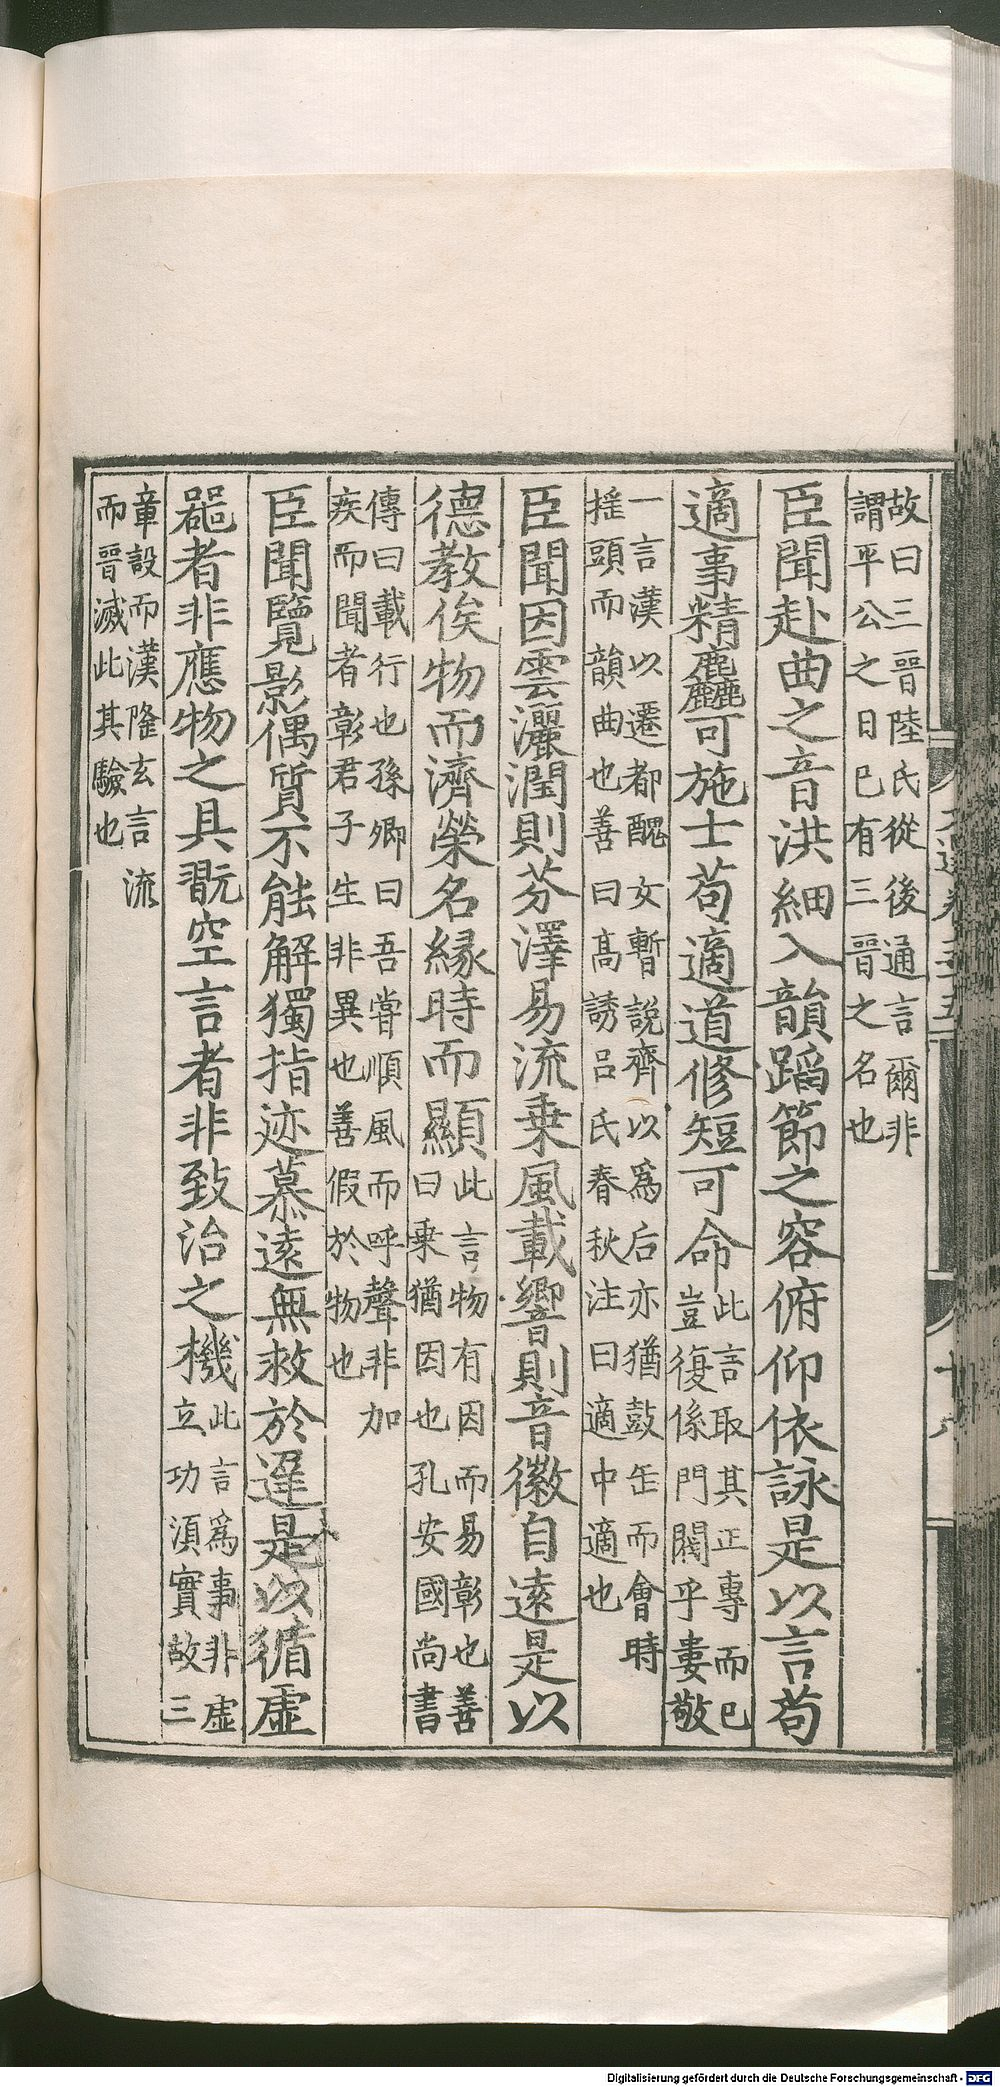 故曰三晉陸氏從後通言爾非
謂平公之日已有三晉之名也
臣聞赴曲之音洪細入韻蹈節之容俯仰依詠是以言苟
適事精麤可施士苟適道修短可命此言取其正專而已
豈復係門閥乎婁敬
一言漢以遷都醜女暫說齊以爲后亦猶鼓缶而會時
搖頭而韻曲也善曰高誘呂氏春秋注曰適中適也
臣聞因雲灑潤則芬澤易流乗風載響則音徽自遠是以
德教俟物而濟榮名緣時而顯此言物有因而易彰也善
曰乗猶因也孔安國尚書
傳曰載行也孫卿曰吾嘗順風而呼聲非加
疾而聞者彰君子生非異也善假於物也
臣聞覽影偶質不能解獨指迹慕遠無救於遲是以循虛
器者非應物之具翫空言者非致治之機此言爲事非虛
立功須實故三
章設而漢隆玄言流
而晉滅此其驗也
Digitalisierung gefördert durch die Deutsche Forschungsgemeinschaft - DFG